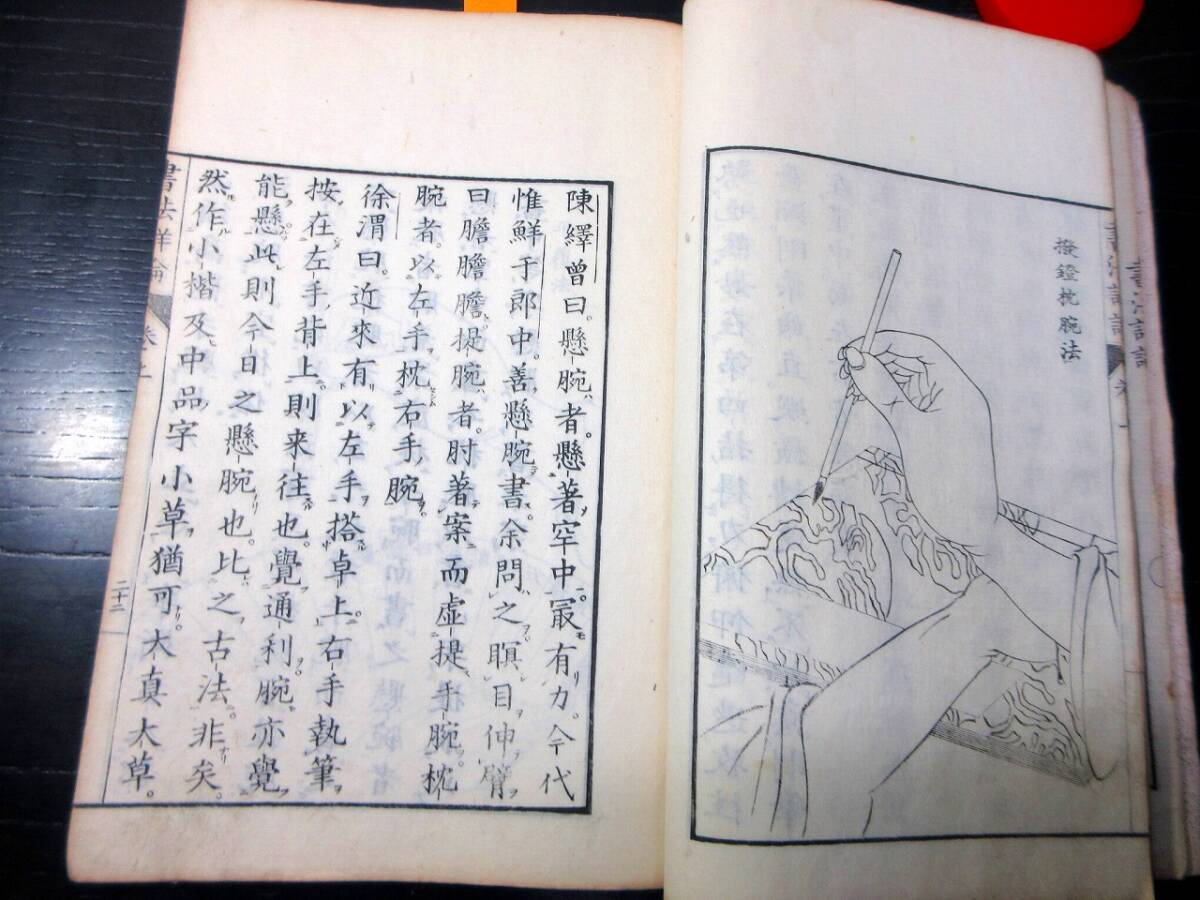 撥鐙枕腕法
陳繹曾曰懸腕者。懸著牢中。最有力。今代
惟鮮于郎中。善懸腕書。余問之瞑目伸臂
曰膽膽膽。提腕者。肘著案而虛提手腕。枕
腕者。以左手枕右手腕。
徐渭曰。近來有以左手搭卓上。右手執筆
按在左手背上。則来往也覺通利。腕亦覺
能懸。此則今日之懸腕也。比之古法非矣。
然作小楷及中品字小草猶可。大真大草。
書法詳論
卷上
二十二